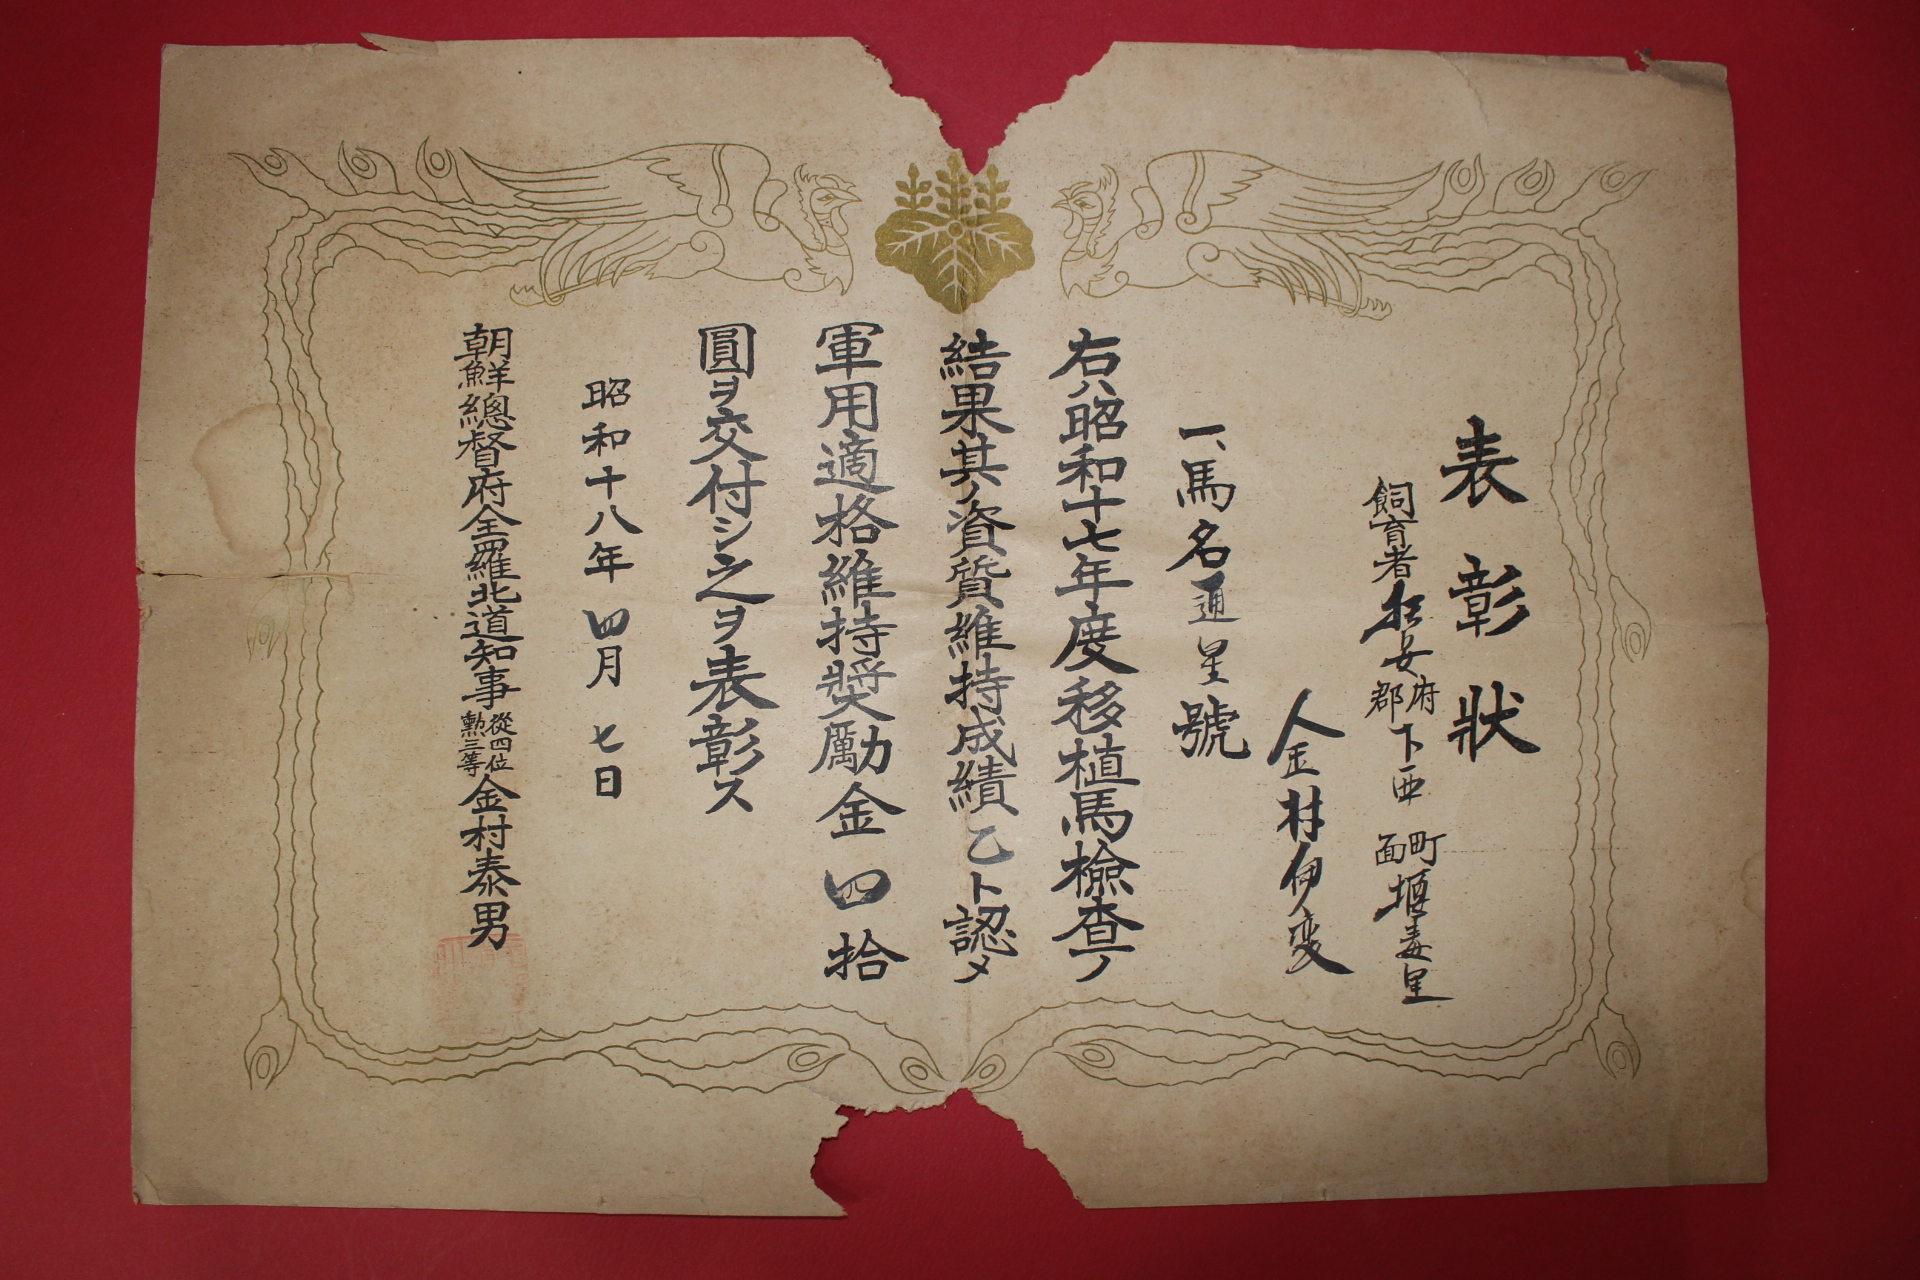 表彰狀
飼育者扶安府郡下西町面堰毒里
金村伊變
一、馬名通星號
右ハ昭和十七年度移植馬檢查ノ
結果其ノ資質維持成績乙ト認メ
軍用適格維持奬勵金四拾
圓ヲ交付シ之ヲ表彰ス
昭和十八年四月七日
朝鮮總督府全羅北道知事從四位勲三等金村泰男